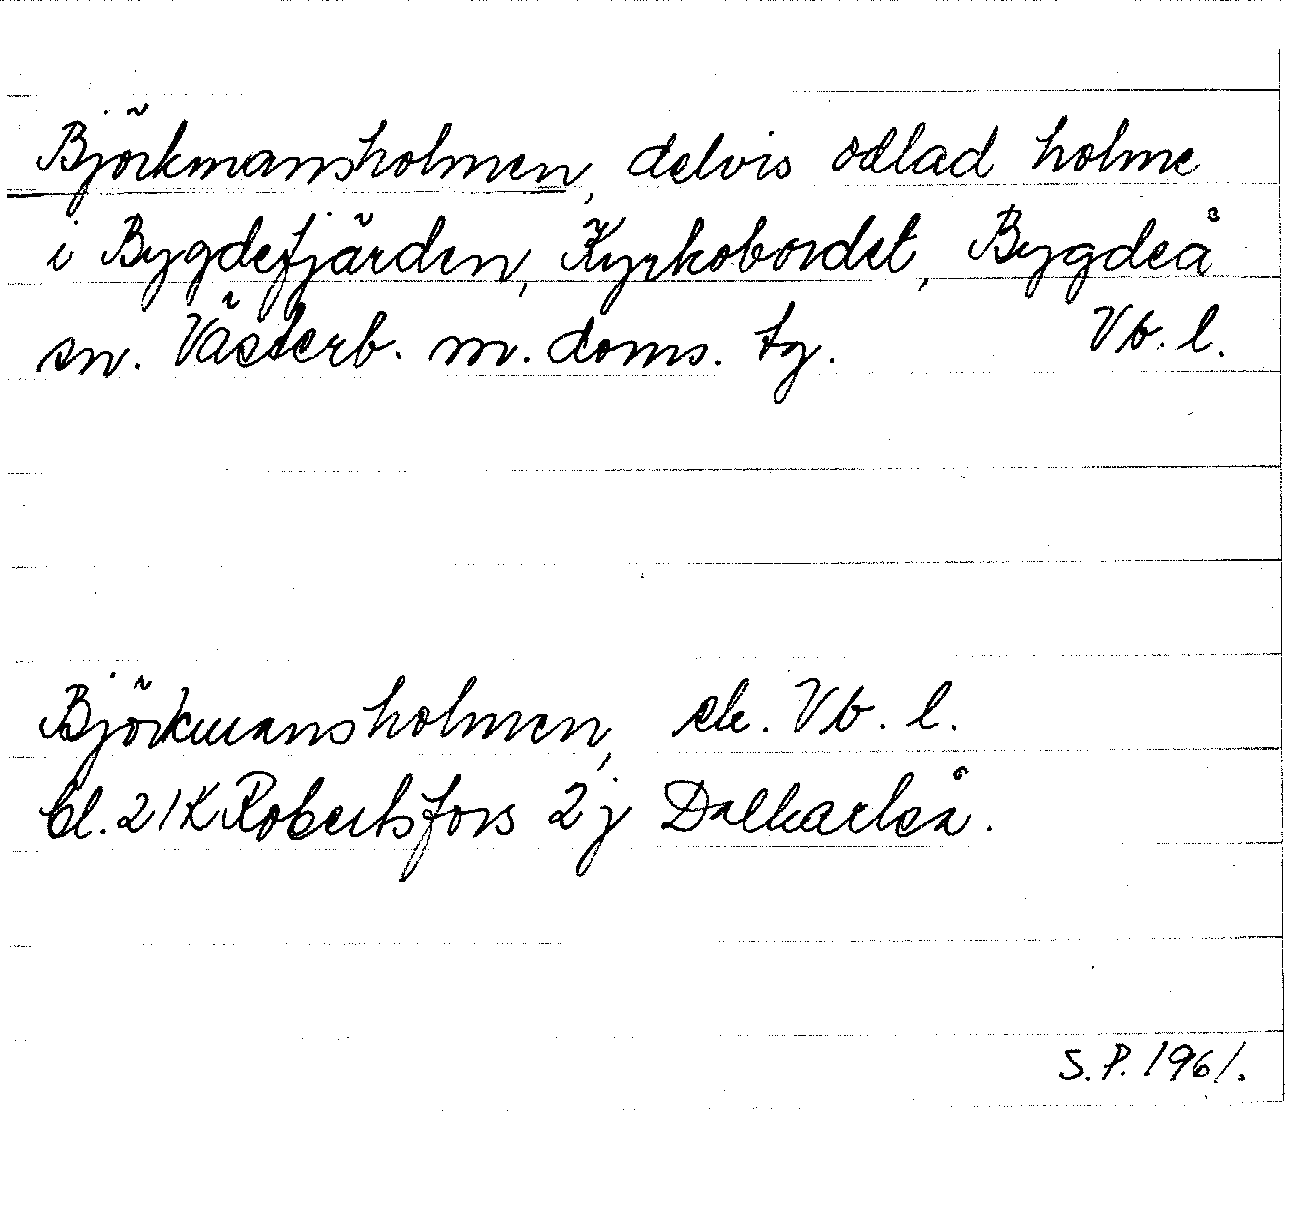 Björkmansholmen, delvis odlad holme
i Bygdefjärden, Kyrkobordet, Bygdeå
sn. Västerb. m. doms. tg. Vb. l.
Björkmansholmen, ek. Vb. l.
bl. 21K Robertsfors 2j Dalkarlså.
S.P. 1961.